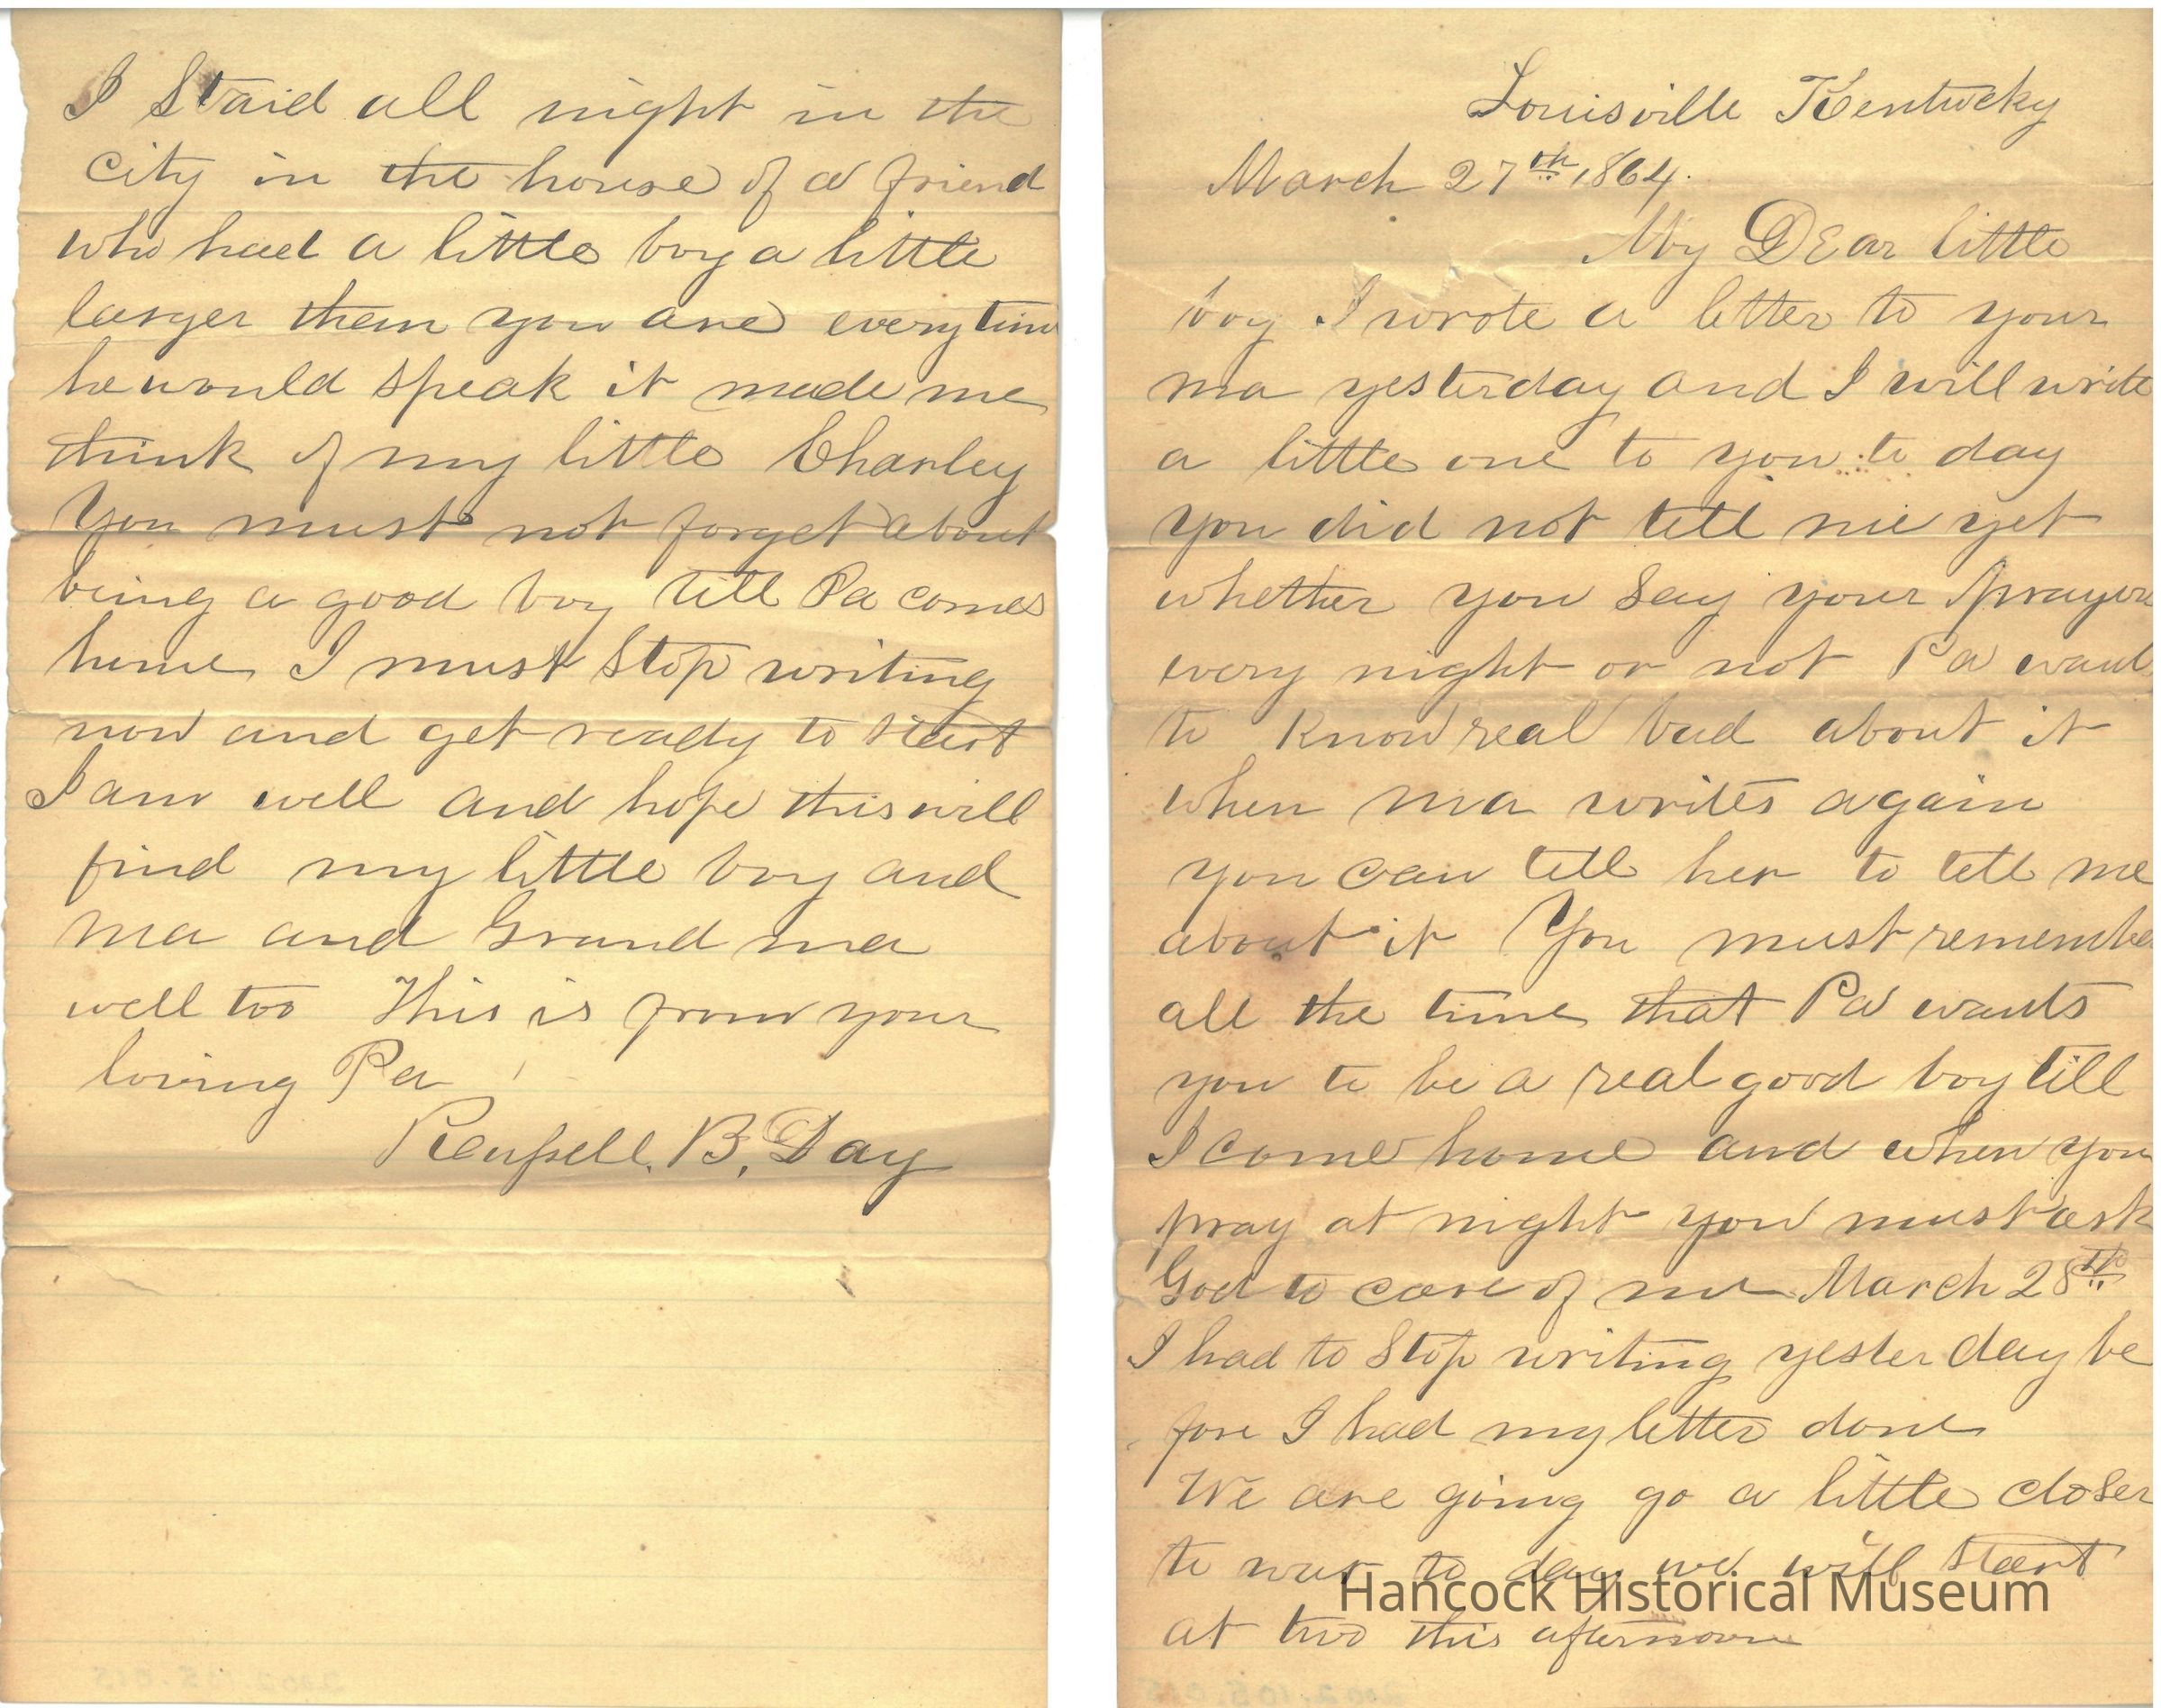 Louisville Kentucky
March 27th 1864.
My DEar little
boy I wrote a letter to your
ma yesterday and I will write
a little one to you to day
you did not tell me yet
whether you say your prayers
every night or not Pa want
to know real bad about it
when ma writes again
you can tell her to tell me
about it You must remembe
all the time that Pa wants
you to be a real good boy till
I come home and when you
pray at night you must ask
God to care of me March 28th
I had to Stop writing yester day be
fore I had my letter done
We are going go a little closer
to war to day we will start
at two this afternoon
Hancock Historical Museum
I Staid all night in the
city in the house of a friend
who had a little boy a little
larger then you are every time
he would speak it made me
think of my little Charley
You must not forget about
being a good boy till Pa comes
home I must Stop writing
now and get ready to start
I am well and hope this will
find my little boy and
ma and Grand ma
well too This is from your
loving Pa
B. Day